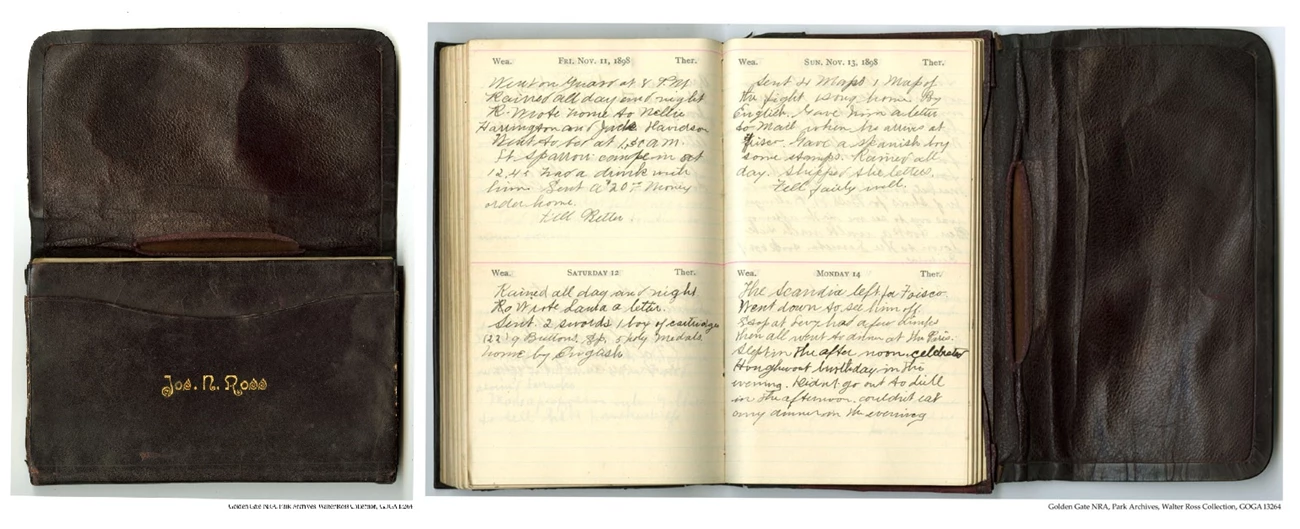 Jos. N. Ross
Golden Gate NRA, Park Archives, Walter Ross Collection, GOGA 13264
Wea. FRI. NOV. 11, 1898 Ther.
Went on Guard at 8 P.M.
Rained all day and night
R. Wrote home to Nellie
Harrington and Jack Davidson
Went to bed at
Lt. Sparrow came in at
12.45 had a drink with
him. Sent a $20 Money
order home.
Felt Better.
Wea. SATURDAY 12 Ther.
Rained all day and night
Wrote Laura a letter.
Sent 2 swords 1 box of cartridges
Buttons, Sp. Medals
home by English
Wea. SUN. NOV. 13, 1898 Ther.
Sent 4 Maps 1 Map of
the fight song home By
English. Gave him a letter
to Mail when he arrives at
Frisco. Gave a spanish boy
some stamps. Rained all
day. Stripped the letters.
Felt fairly well.
Wea. MONDAY 14 Ther.
The Scandia left for Frisco
Went down to see him off.
Stop at Levy had a few drinks
then all went to dinner at the Paris.
Slept in the after noon. celebrated
birthday in the
evening. Didnt go out to drill
in the afternoon. couldnt eat
any dinner in the evening
Golden Gate NRA, Park Archives, Walter Ross Collection, GOGA 13264